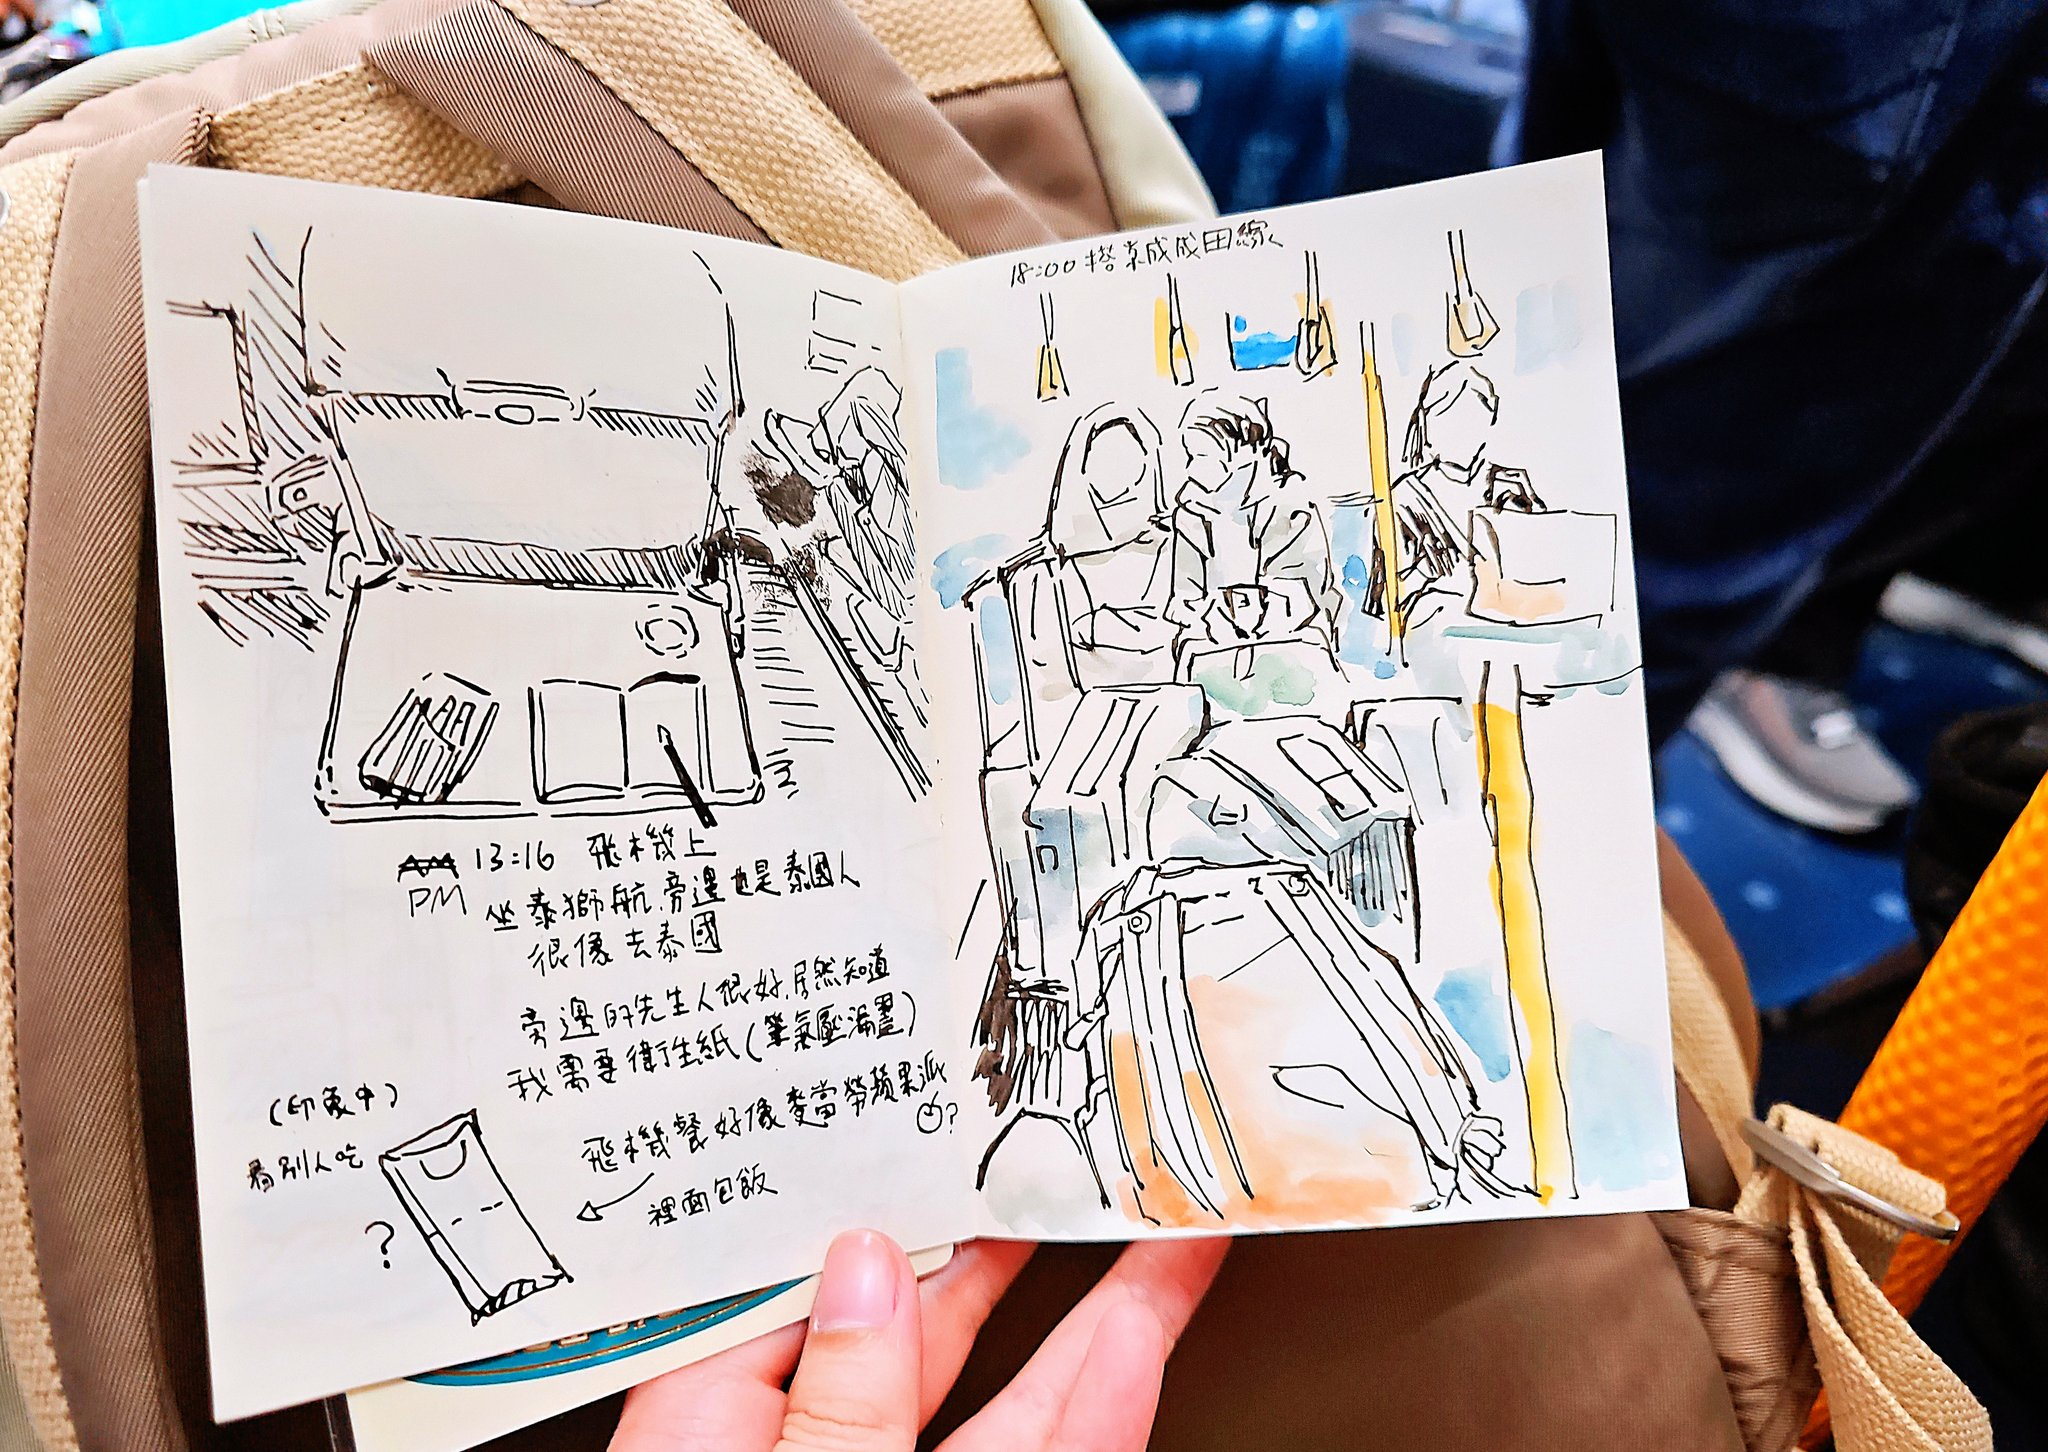 13:16 飛機上
PM 坐泰獅航,旁邊也是泰國人
很像去泰國
旁邊的先生人很好,居然知道
我需要衛生紙(筆氣壓漏墨)
飛機餐好像麥當勞蘋果派
?
裡面包飯
(印象中)
看別人吃
?
18:00 搭京成成田線